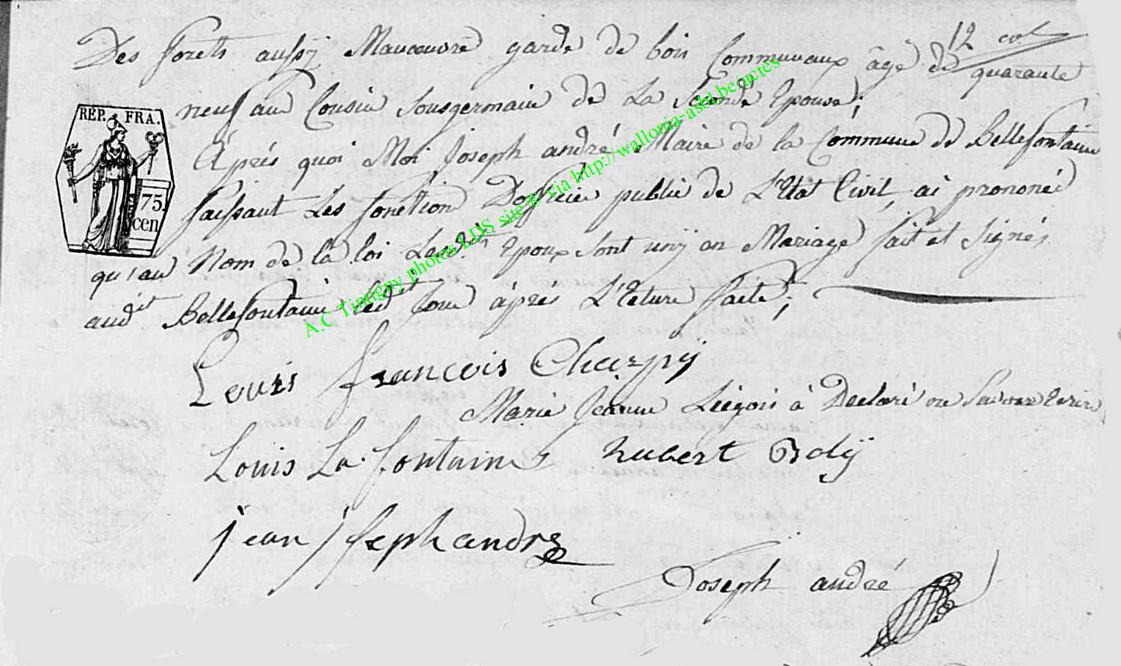 12 
Des forets aussÿ Manoeuvre garde de bois Communaux âgé de quarante
neuf ans Cousin Sousgermain de La Seconde Epouse;
Après quoi Moi Joseph andré Maire de la Commune de Bellefontaine
faissant Les fonction Dofficie public de L'Etat Civil, ai prononcé
qu'au Nom de la loi Lesd.ts Epoux sont uny en Mariage fait et signés
aud.it Bellefontaine led.it Jour àprés L'Eture faite;
REP. FRA.
75
cen
A.C Tintigny photos LDS site gr via http://wallonia-asbl.be/actes
Louis françois Charpÿ
Marie Jeanne Liégois à Declaré ne Savoir Ecrire
Louis La fontaine hubert Bolÿ
jean josephandre
Joseph andré